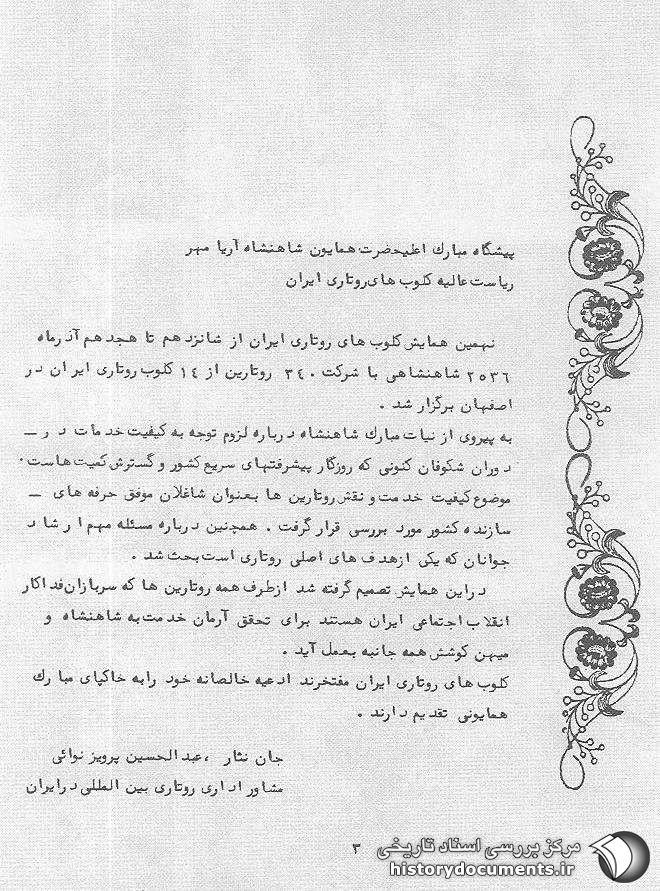 پیشگاه مبارك اعلیحضرت همایون شاهنشاه آریا مهر
ریاست عالیه کلوب های روتاری ایران
نهمین همایش کلوب های روتاری ایران از شانزدهم تا هجدهم آذرماه
۲۵۳٦ شاهنشاهی با شرکت ۳٤۰ روتارین از ۱٤ کلوب روتاری ایران در
اصفهان برگزار شد .
به پیروی از نیات مبارك شاهنشاه درباره لزوم توجه به کیفیت خدمات در ــ
دوران شکوفان کنونی که روزگار پیشرفتهای سریع کشور و گسترش کمیت هاست .
موضوع کیفیت خدمت و نقش روتارین ها بعنوان شاغلان موفق حرفه های ــ
سازنده کشور مورد بررسی قرار گرفت . همچنین درباره مسئله مهم ارشاد
جوانان که یکی از هدف های اصلی روتاری است بحث شد .
در این همایش تصمیم گرفته شد از طرف همه روتارین ها که سربازان فداکار
انقلاب اجتماعی ایران هستند برای تحقق آرمان خدمت به شاهنشاه و
میهن کوشش همه جانبه بعمل آید .
کلوب های روتاری ایران مفتخرند ادعیه خالصانه خود را به خاکپای مبارك
همایونی تقدیم دارند .
جان نثار ، عبدالحسین پرویز نوائی
مشاور اداری روتاری بین المللی در ایران
۳
مرکز بررسی اسناد تاریخی
historydocuments.ir